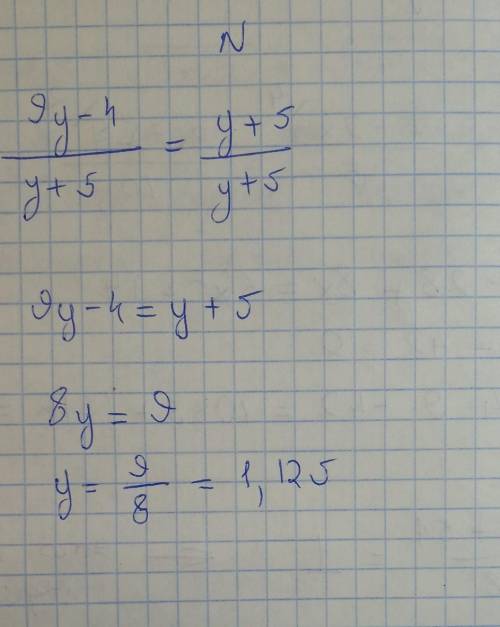 N
9y-4/y+5 = y+5/y+5
9y-4=y+5
8y=9
y=9/8=1,125